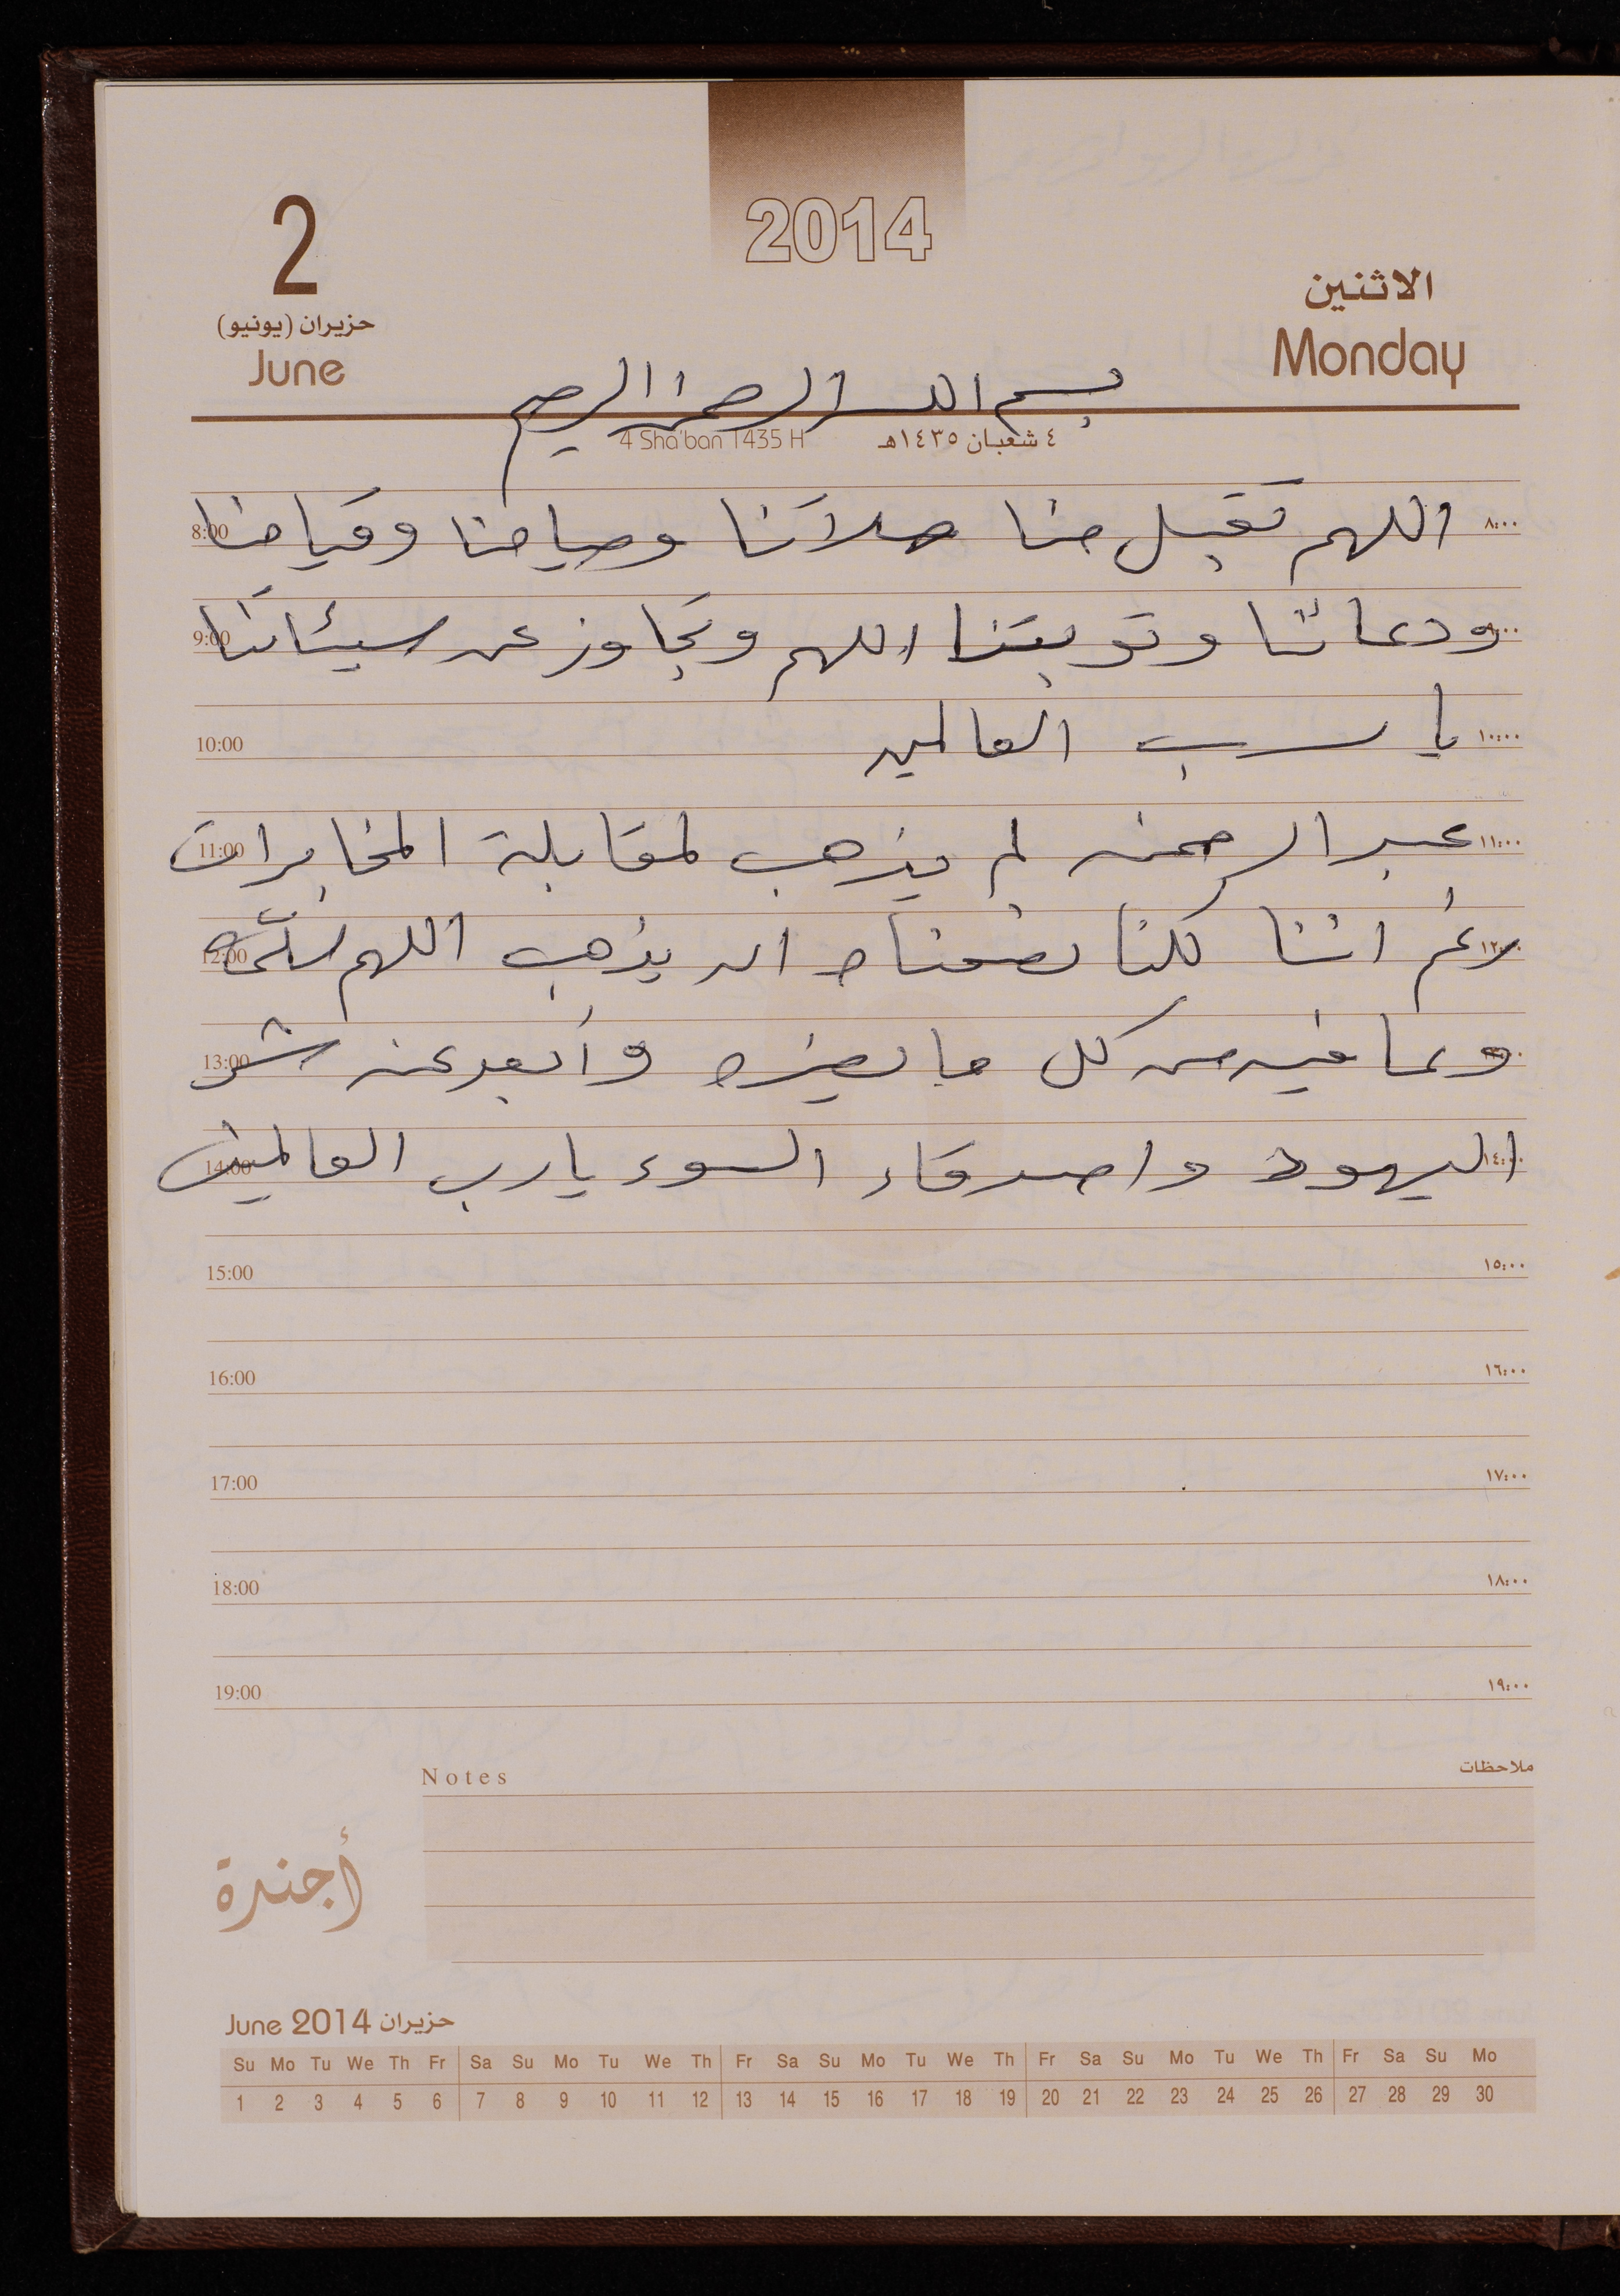 2014
2
الاثنين
حزيران (يونيو)
Monday
June
بسم الله الرحمن الرحيم
4 Sha'ban 1435 H ٤ شعبان ١٤٣٥هـ
8:00 اللهم تقبل منا صلاتنا وصيامنا وقيامنا ٨:٠٠
9:00 ودعائنا وتوبتنا اللهم وتجاوز عن سيئاتنا
10:00 يا رب العالمين ١٠:٠٠
11:00 عبد الرحمن لم يذهب لمقابلة المخابرات ١١:٠٠
12:00 رغم اننا كلنا نصحناه ان يذهب اللهم ١٢:٠٠
13:00 وعافيه من كل ما يضره وأبعد عنه شر
14:00 اليهود واصدقاء السوء يارب العالمين ١٤:٠٠
15:00 ١٥:٠٠
16:00 ١٦:٠٠
17:00 ١٧:٠٠
18:00 ١٨:٠٠
19:00 ١٩:٠٠
Notes ملاحظات
أجندة
June 2014 حزيران
Su Mo Tu We Th Fr Sa Su Mo Tu We Th Fr Sa Su Mo Tu We Th Fr Sa Su Mo Tu We Th Fr Sa Su Mo
1 2 3 4 5 6 7 8 9 10 11 12 13 14 15 16 17 18 19 20 21 22 23 24 25 26 27 28 29 30